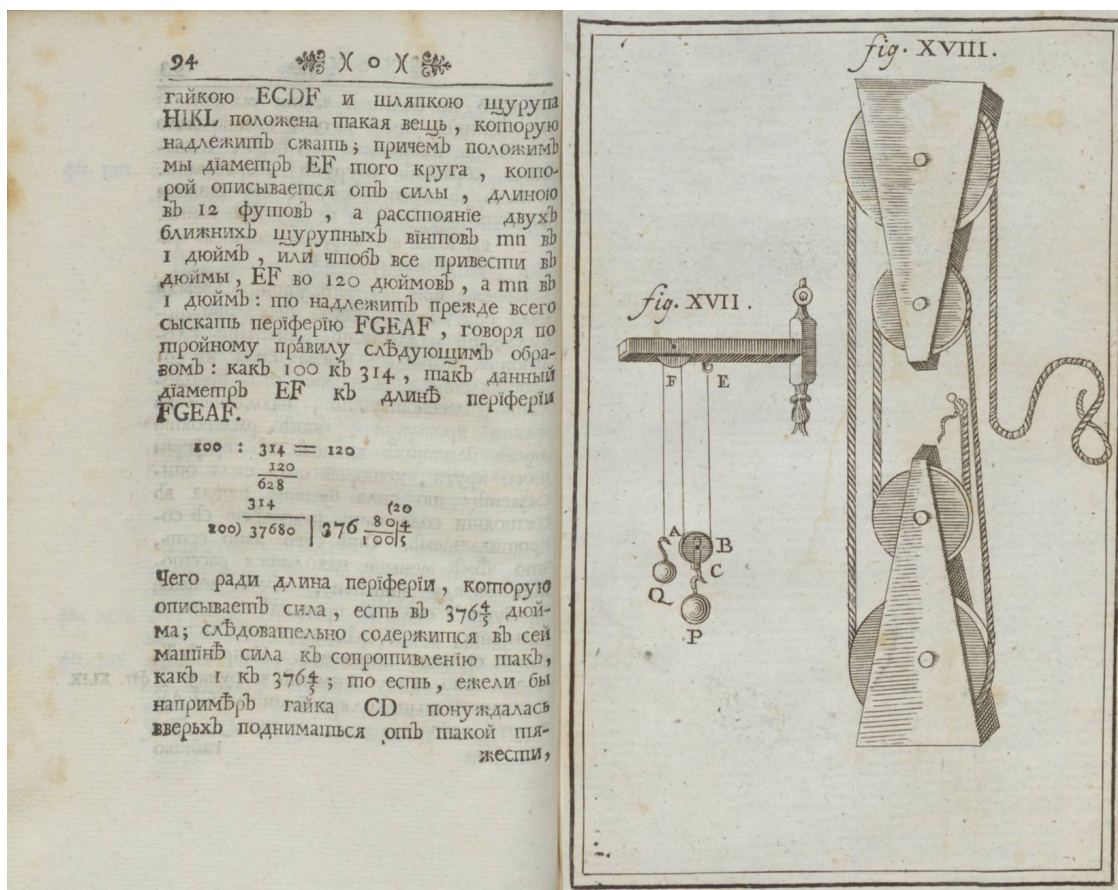 94
гайкою ECDF и шляпкою щурупа
HIKL положена такая вещь, которую
надлежитъ сжать; причемъ положимъ
мы дїаметръ EF того круга, кото-
рой описывается отъ силы, длиною
въ 12 футовъ, а разстоянїе двухъ
ближнихъ щурупныхъ вїнтовъ mn въ
1 дюймъ, или чтобъ все привести въ
дюймы, EF во 120 дюймовъ, а mn въ
1 дюймъ: то надлежитъ прежде всего
сыскать перїферїю FGEAF, говоря по
тройному правилу слѣдующимъ обра-
зомъ: какъ 100 къ 314, такъ данный
дїаметръ EF къ длинѣ перїферїи
FGEAF.
100 : 314 = 120
120
628
314 (20
100) 37680 | 376 80|4
100|5
Чего ради длина перїферїи, которую
описываетъ сила, есть въ 376⅘ дюй-
ма; слѣдовательно содержится въ сей
машїнѣ сила къ сопротивленїю такъ,
какъ 1 къ 376⅘; то есть, ежели бы
напримѣръ гайка CD понуждалась
вверьхъ подниматься отъ такой тя-
жести,
fig. XVIII.
fig. XVII.
F
E
A
B
C
Q
P